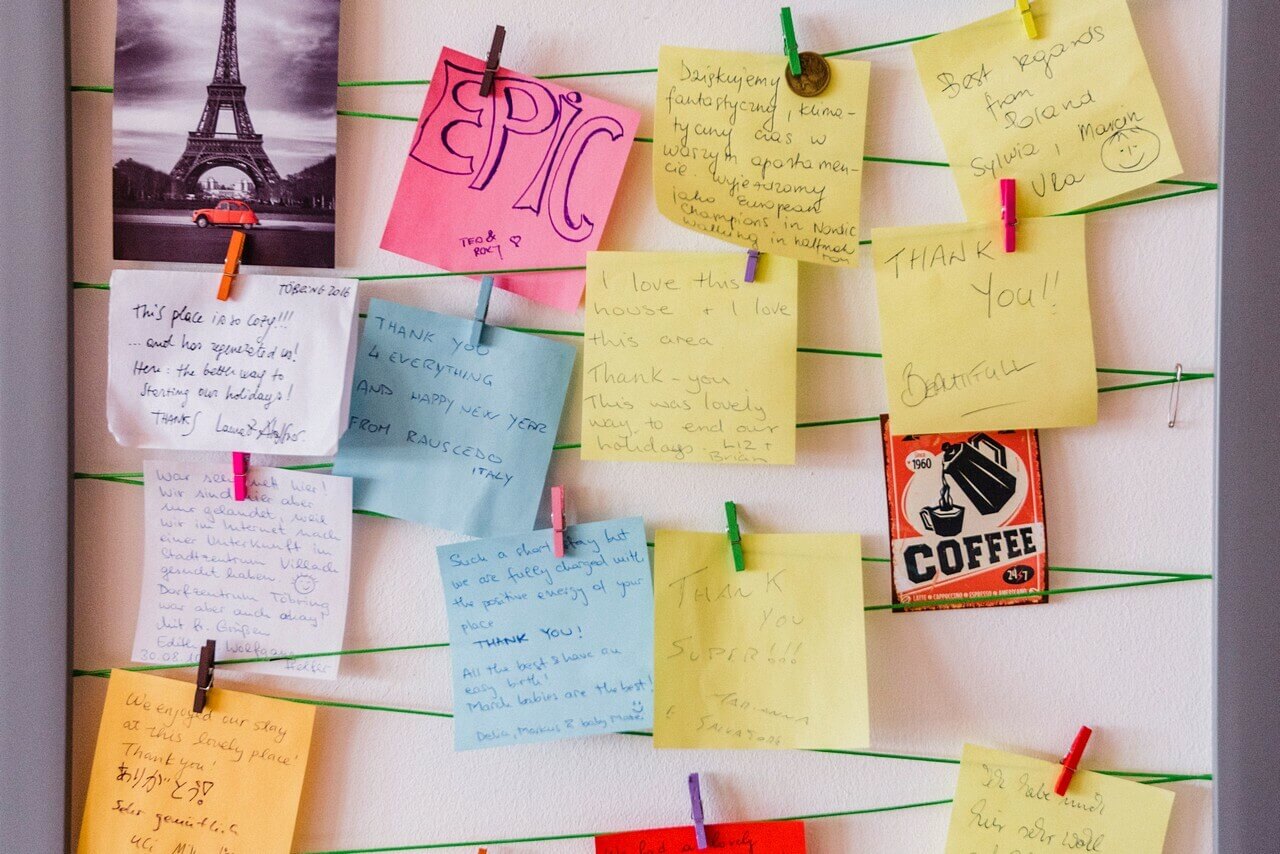 EPIC
TEO &
ROXY
Dziękujemy
fantastyczny, klima-
tyczny czas w
waszym apartamen-
cie. Wyjeżdżamy
jako European
Champions in Nordic
Walking in halfmara
ton
Best regards
from
Poland
Sylwia i Marcin
Ula
TÖBRING 2016
This place is so cozy!!!
...and has regenerated us!
Here: the better way to
starting our holidays!
THANKS
THANK YOU
4 EVERYTHING
AND HAPPY NEW YEAR
FROM RAUSCEDO
ITALY
I love this
house + I love
this area
Thank-you
This was lovely
way to end our
holidays. Liz +
Brian
THANK
YOU!!
BEAUTIFULL
Since
1960
COFFEE
24/7
LATTE CAPPUCCINO ESPRESSO AMERICANO
War sehr nett hier!
Wir sind hier aber
nur gelandet, weil
wir im Internet nach
einer Unterkunft im
Stadtzentrum Villach
gesucht haben.
Dorfzentrum Töbring
war aber auch okay!
Mit fr. Grüßen
Edith Wolfgang
Such a short stay but
we are fully charged with
the positive energy of your
place
THANK YOU!
All the best & have an
easy birth!
March babies are the best!
Delia, Markus & baby
THANK
YOU
SUPER!!!
MARIANNA
E SALVATORE
We enjoyed our stay
at this lovely place!
Thank you!
ありがとう!
Sehr gemütlich
had a lovely
Ich habe mich
hier sehr wohl